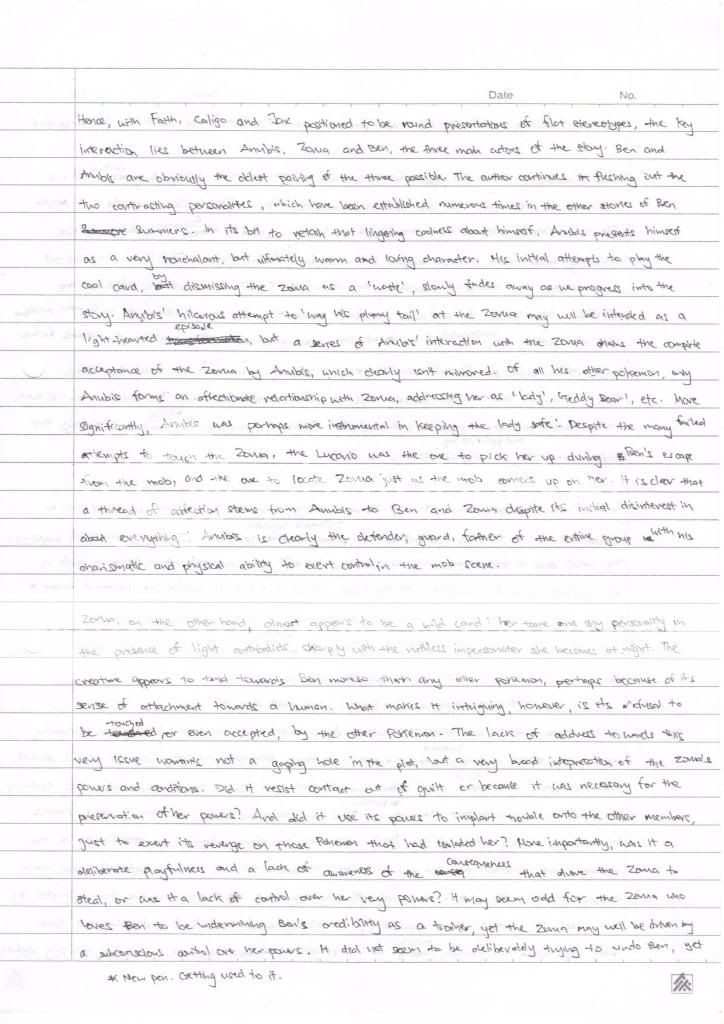 Date No.
Hence, with Faith, Caligo and Jinx positioned to be round presentations of flat stereotypes, the key
interaction lies between Anubis, Zorua and Ben, the three main actors of the story. Ben and
Anubis are obviously the oldest pairing of the three possible. The author continues in fleshing out the
two contrasting personalities, which have been established numerous times in the other stories of Ben
Summers. In its bit to retain that lingering coolness about himself, Anubis presents himself
as a very nonchalant, but ultimately warm and loving character. His initial attempts to play the
cool card, by dismissing the Zorua as a 'waste', slowly fades away as we progress into the
story. Anubis' hilarous attempt to 'wag his plumy tail' at the Zorua may well be intended as a
light-hearted episode, but a series of Anubis' interaction with the Zorua shows the complete
acceptance of the Zorua by Anubis, which clearly isn't mirrored. Of all his other pokemon, only
Anubis forms an affectionate relationship with Zorua, addressing her as 'lady', 'teddy bear', etc. More
significantly, Anubis was perhaps more instrumental in keeping the lady safe: Despite the many failed
attempts to touch the Zorua, the Lucario was the one to pick her up during Ben's escape
from the mob, and the one to locate Zorua just as the mob comes up on her. It is clear that
a thread of affection stems from Anubis to Ben and Zorua despite its initial disinterest in
about everything: Anubis is clearly the defender, guard, father of the entire group with his
charismatic and physical ability to exert control in the mob scene.
Zorua, on the other hand, almost appears to be a wild card: her tame and shy personality in
the presence of light contradicts sharply with the ruthless impersonater she becomes at night. The
creature appears to tend towards Ben moreso than any other pokemon, perhaps because of its
sense of attachment towards a human. What makes it intriguing, however, is its refusal to
be touched, or even accepted, by the other Pokemon. The lack of address towards this
very issue warrants not a gaping hole in the plot, but a very broad interpretation of the Zorua's
powers and conditions. Did it resist contact out of guilt or because it was necessary for the
preservation of her powers? And did it use its powers to implant trouble onto the other members,
just to exert its revenge on those Pokemon that had isolated her? More importantly, was it a
deliberate playfulness and a lack of awareness of the consequences that drove the Zorua to
steal, or was it a lack of control over her very powers? It may seem odd for the Zorua who
loves Ben to be undermining Ben's credibility as a trainer, yet the Zorua may well be driven by
a subconscious control over her powers. It did not seem to be deliberately trying to undo Ben, yet
* New pen. Getting used to it.